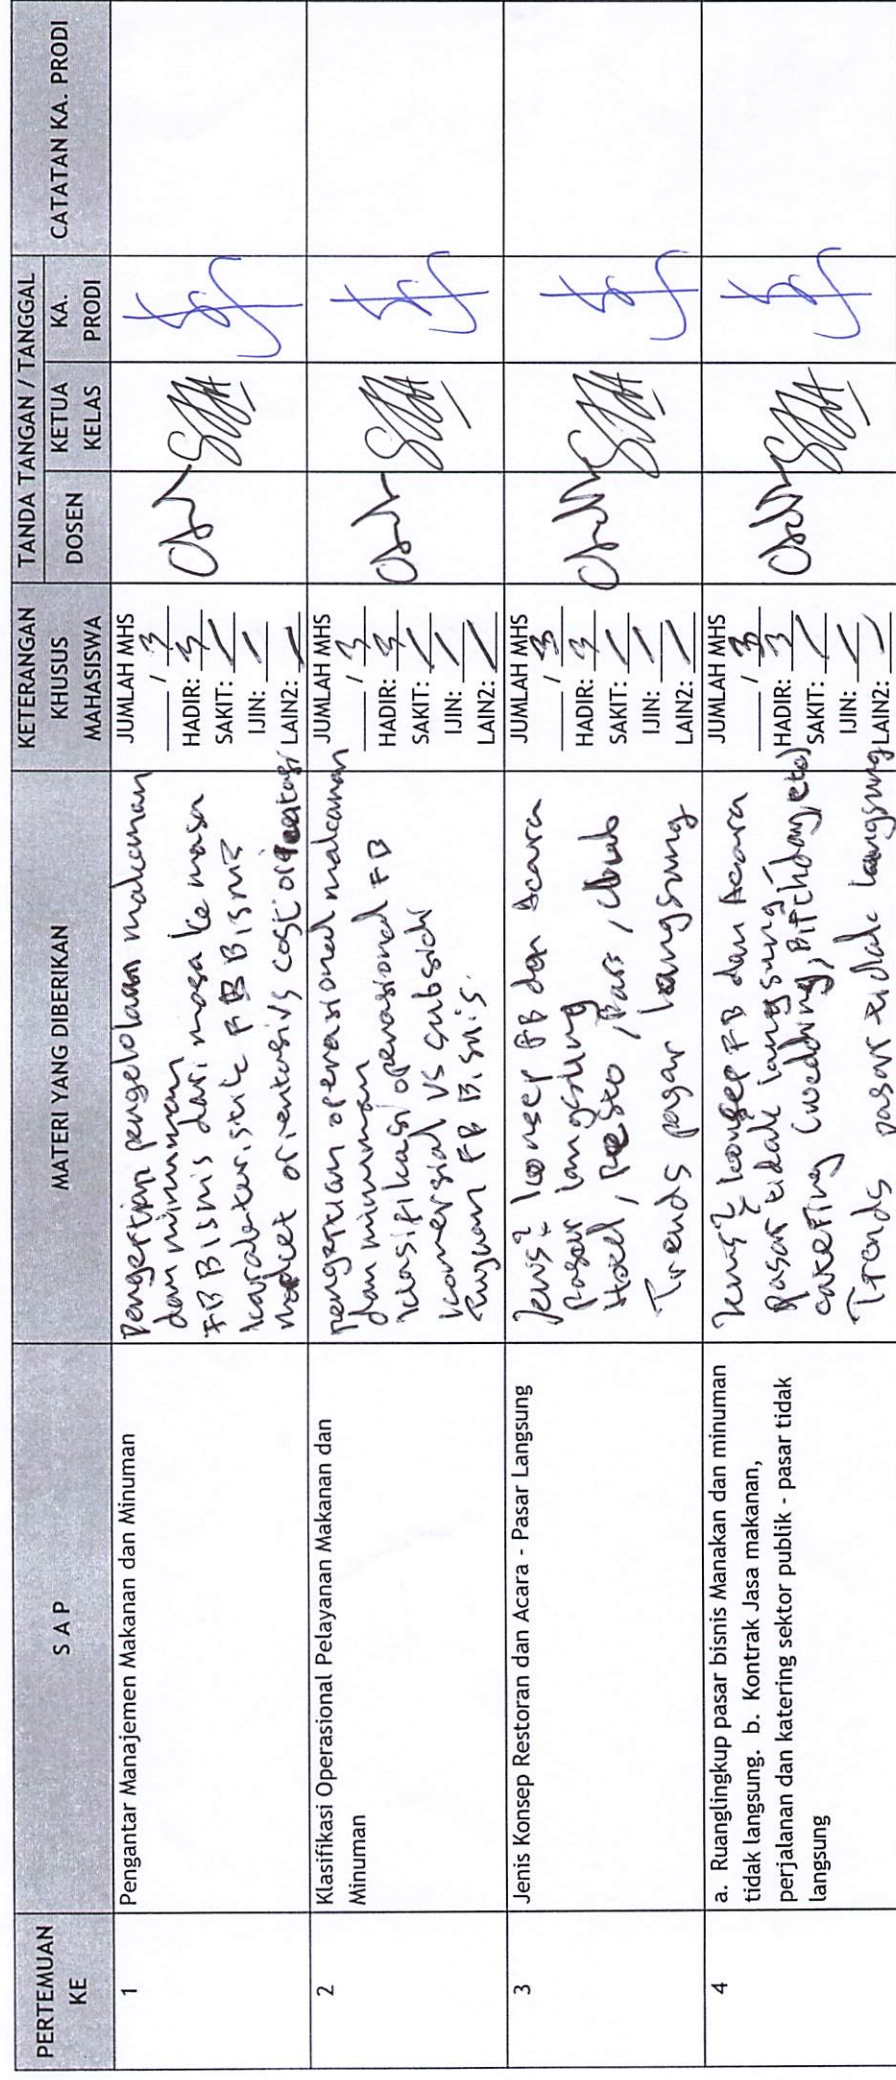 PERTEMUAN KE
S A P
MATERI YANG DIBERIKAN
KETERANGAN KHUSUS MAHASISWA
TANDA TANGAN / TANGGAL
DOSEN
KETUA KELAS
KA. PRODI
CATATAN KA. PRODI
1
Pengantar Manajemen Makanan dan Minuman
Pengertian pengelolaan makanan
dan minuman
FB Bisnis dari masa ke masa
karakteristik FB Bisnis
market orientasi vs cost orientasi
JUMLAH MHS
/ 3
HADIR: 3
SAKIT: /
IJIN: /
LAIN2: /
2
Klasifikasi Operasional Pelayanan Makanan dan
Minuman
pengertian operasional makanan
dan minuman
klasifikasi operasional FB
komersial vs subsidi
Tujuan FB Bisnis.
JUMLAH MHS
/ 3
HADIR: 3
SAKIT: /
IJIN: /
LAIN2: /
3
Jenis Konsep Restoran dan Acara - Pasar Langsung
Jenis2 konsep FB dan Acara
Pasar langsung
Hotel, Resto, Bars, Club
Trends pasar langsung
JUMLAH MHS
/ 3
HADIR: 3
SAKIT: /
IJIN: /
LAIN2: /
4
a. Ruanglingkup pasar bisnis Manakan dan minuman
tidak langsung. b. Kontrak Jasa makanan,
perjalanan dan katering sektor publik - pasar tidak
langsung
Jenis2 konsep FB dan Acara
Pasar tidak langsung
catering (wedding, Birthday, etc)
Trends pasar tidak langsung
JUMLAH MHS
/ 3
HADIR: 3
SAKIT: /
IJIN: /
LAIN2: /